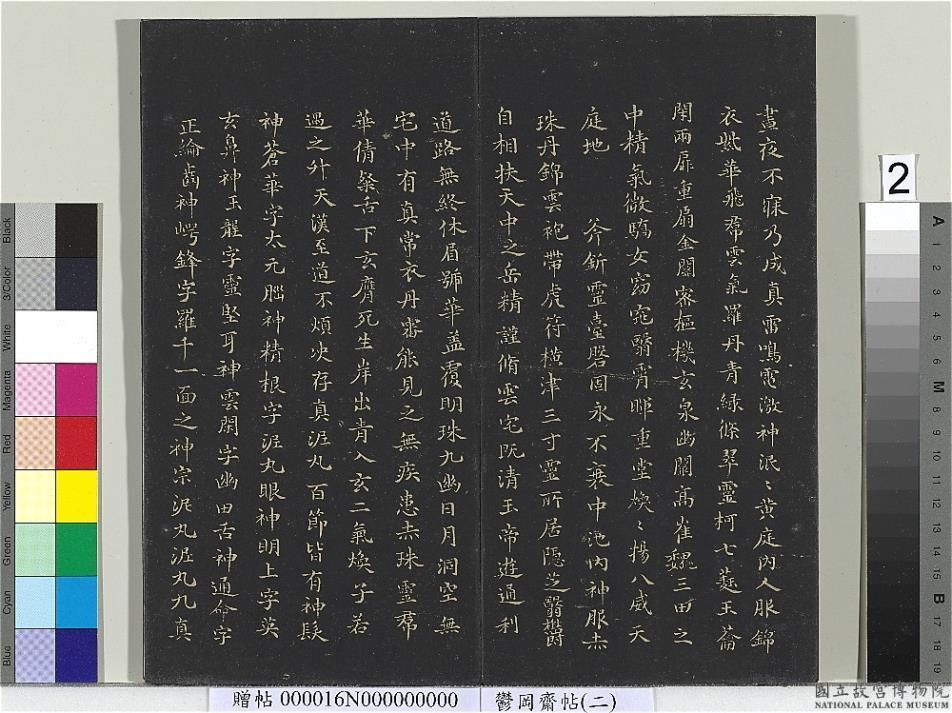 晝夜不寐乃成真雷鳴電激神泯〻黃庭內人服錦
衣紫華飛帬雲氣羅丹青綠條翠靈柯七蕤玉籥
閇兩扉重扇金關密樞機玄泉幽闕高崔巍三田之
中精氣微驕女窈窕翳霄暉重堂煥〻揚八威天
庭地 斧斫靈臺磐固永不衰中池內神服赤
珠丹錦雲袍帶虎符橫津三寸靈所居隱芝翳鬱
自相扶天中之岳精謹脩雲宅既清玉帝遊通利
道路無終休眉號華蓋覆明珠九幽日月洞空無
宅中有真常衣丹審能見之無疾患赤珠靈帬
華倩粲舌下玄膺死生岸出青入玄二氣煥子若
遇之升天漢至道不煩決存真泥丸百節皆有神髮
神蒼華字太元腦神精根字泥丸眼神明上字英
玄鼻神玉壟字靈堅耳神雲閑字幽田舌神通命字
正綸齒神崿鋒字羅千一面之神宗泥丸泥丸九真
2
贈帖 000016N000000000
鬱岡齋帖(二)
國立故宮博物院
NATIONAL PALACE MUSEUM
Black
3/Color
White
Magenta
Red
Yellow
Green
Cyan
Blue
A
1
2
3
4
5
6
M
8
9
10
11
12
13
14
15
B
17
18
19